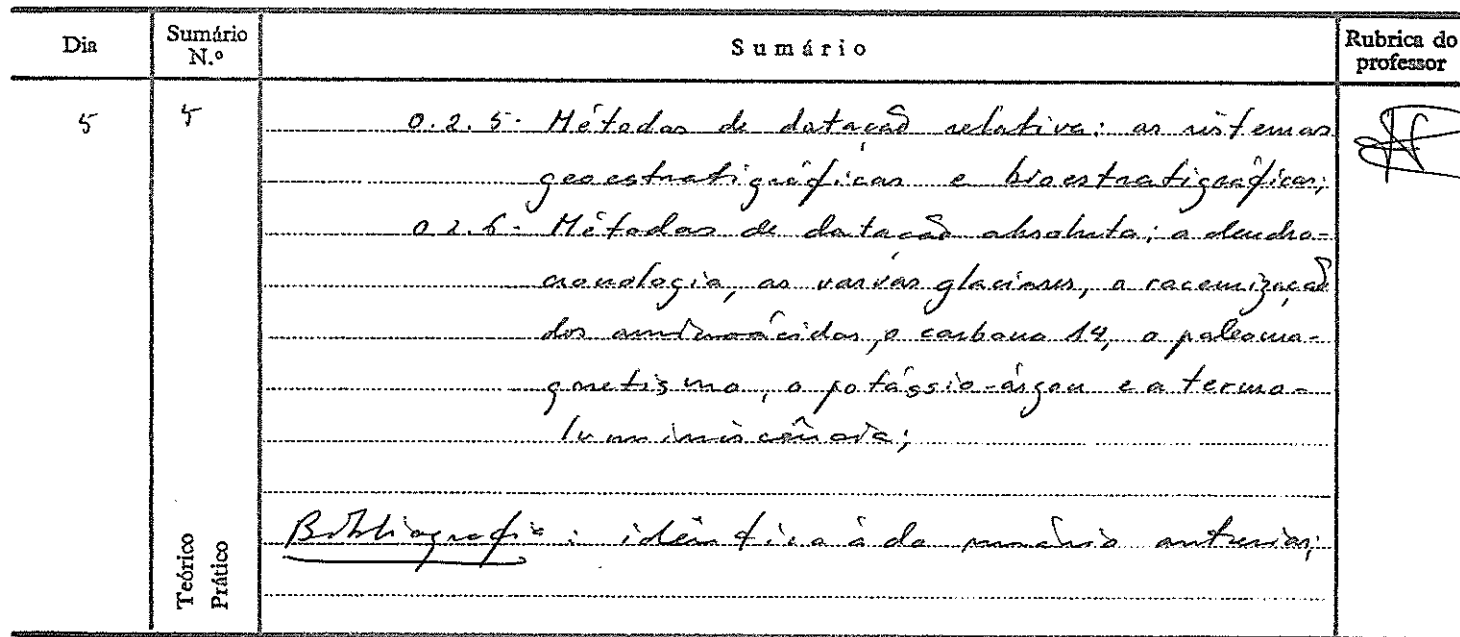 Dia
Sumário N.º
Sumário
Rubrica do professor
5
5
0.2.5- Métodos de datação relativa: os sistemas
geoestratigráficos e bioestratigráficos;
0.2.6- Métodos de datação absoluta: a dendro-
cronologia, as varvas glaciares, a racemização
dos aminoácidos, o carbono 14, o paleoma-
gnetismo, o potássio-árgon e a termo-
luminiscência;
Teórico
Prático
Bibliografia: idêntica à do sumário anterior;